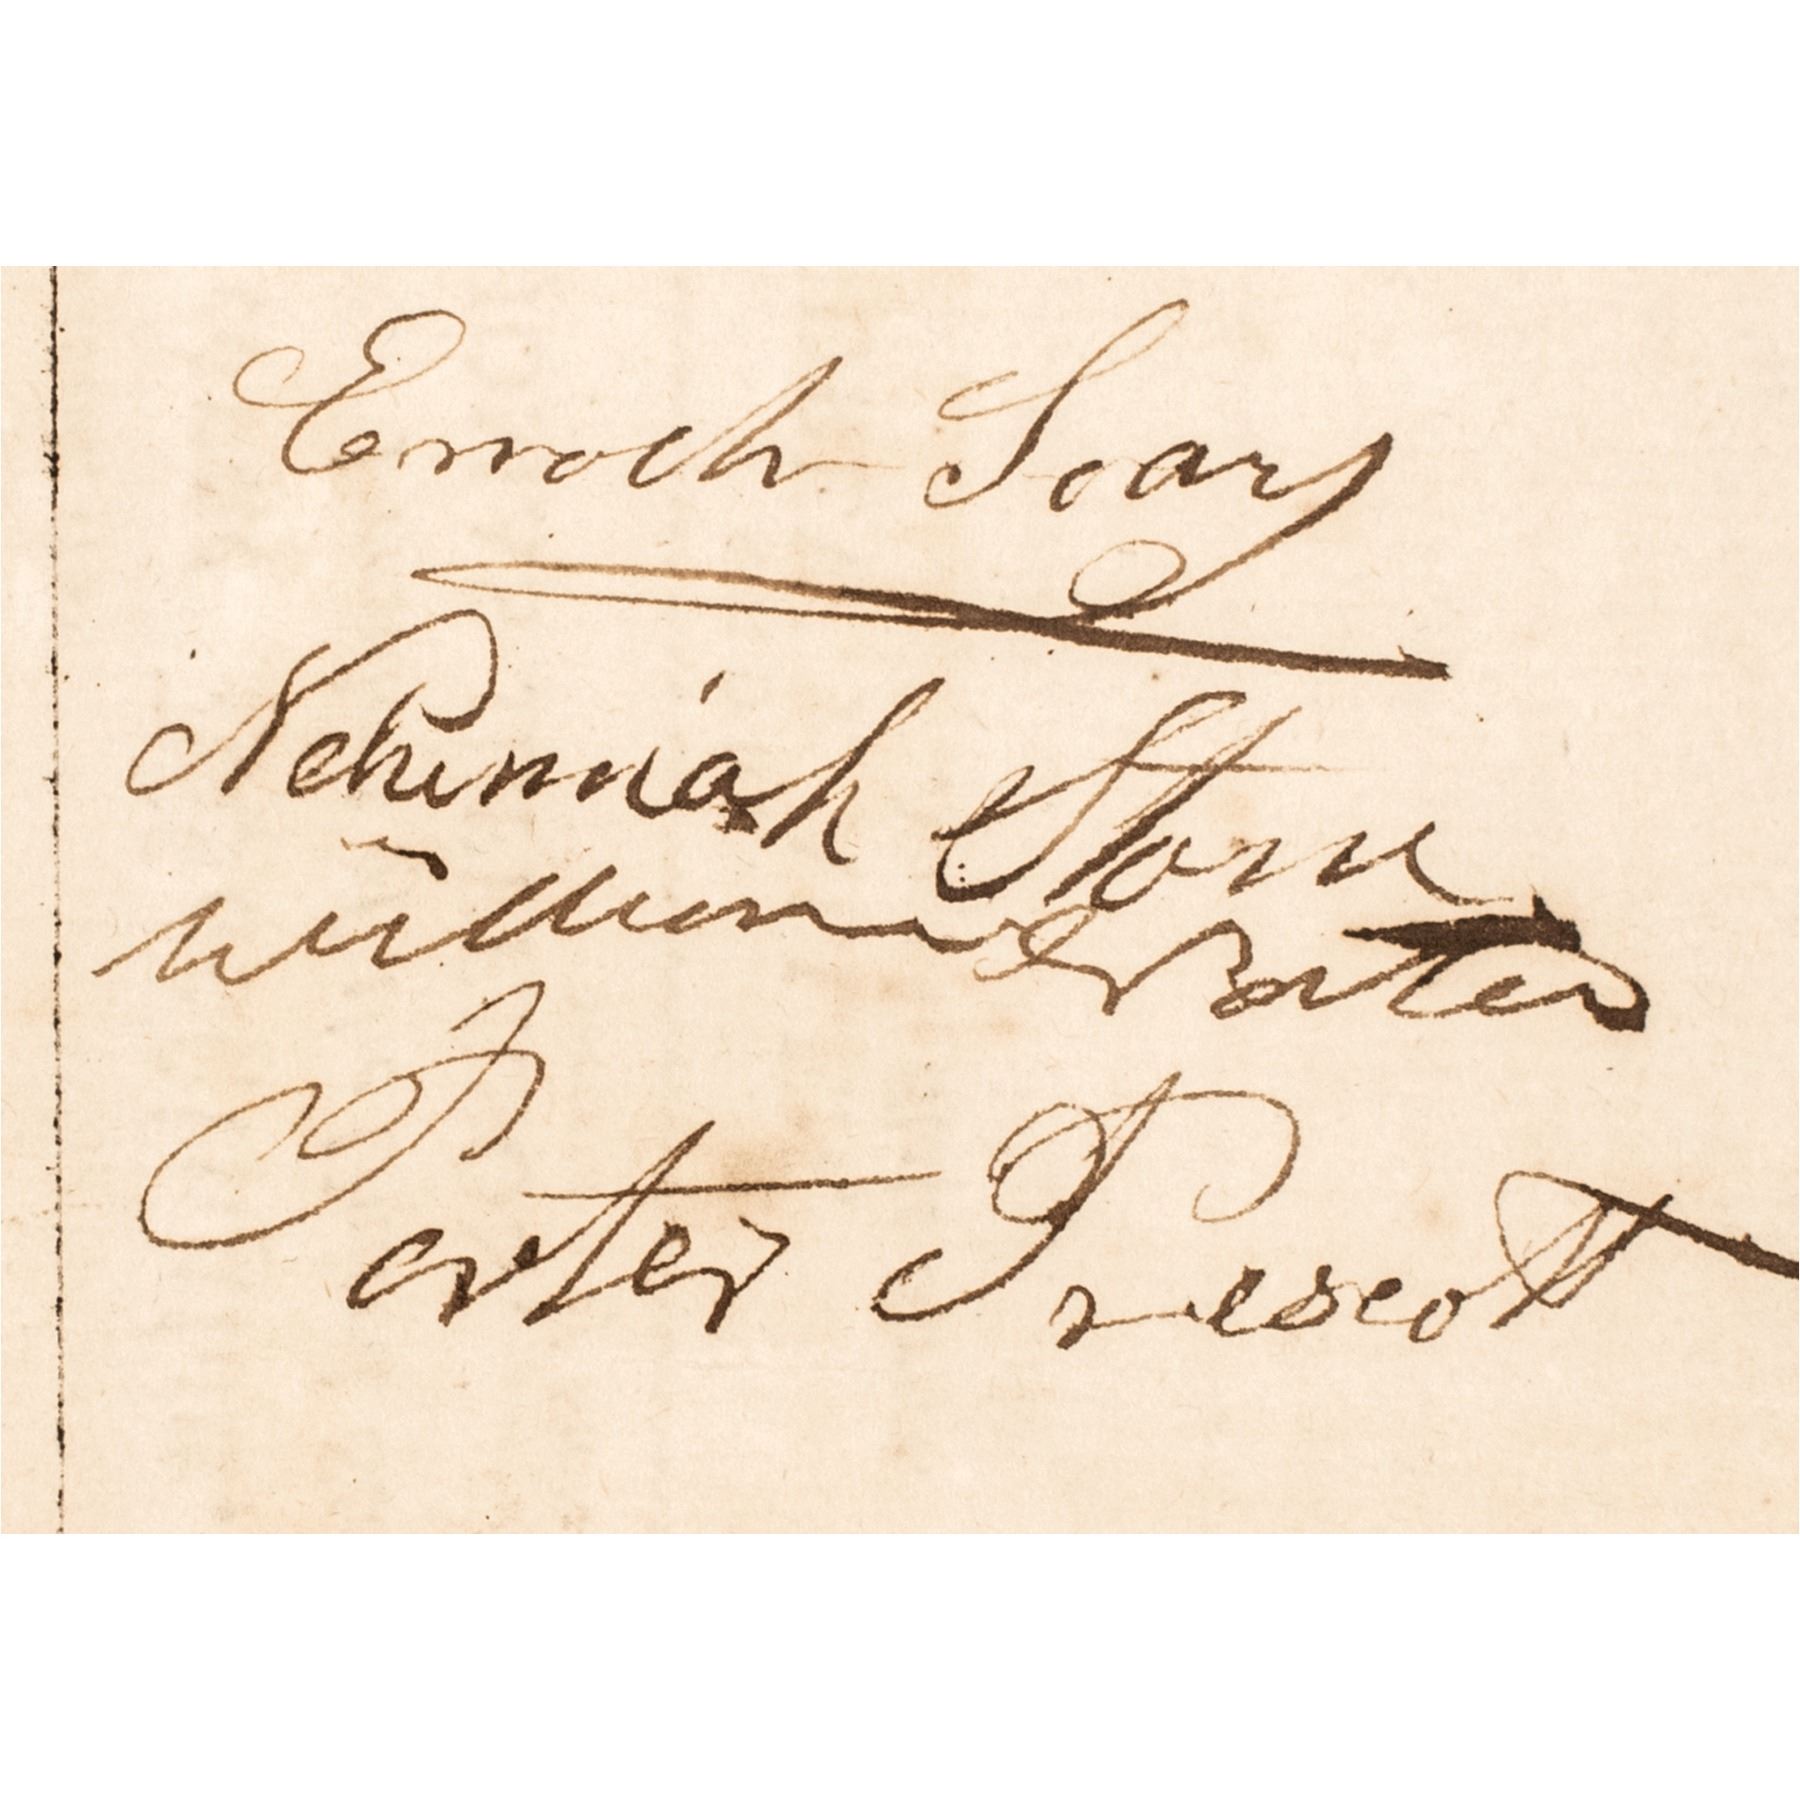 Enoch Soarj
Nehimiah Stone
William Porter
Porter Prescott